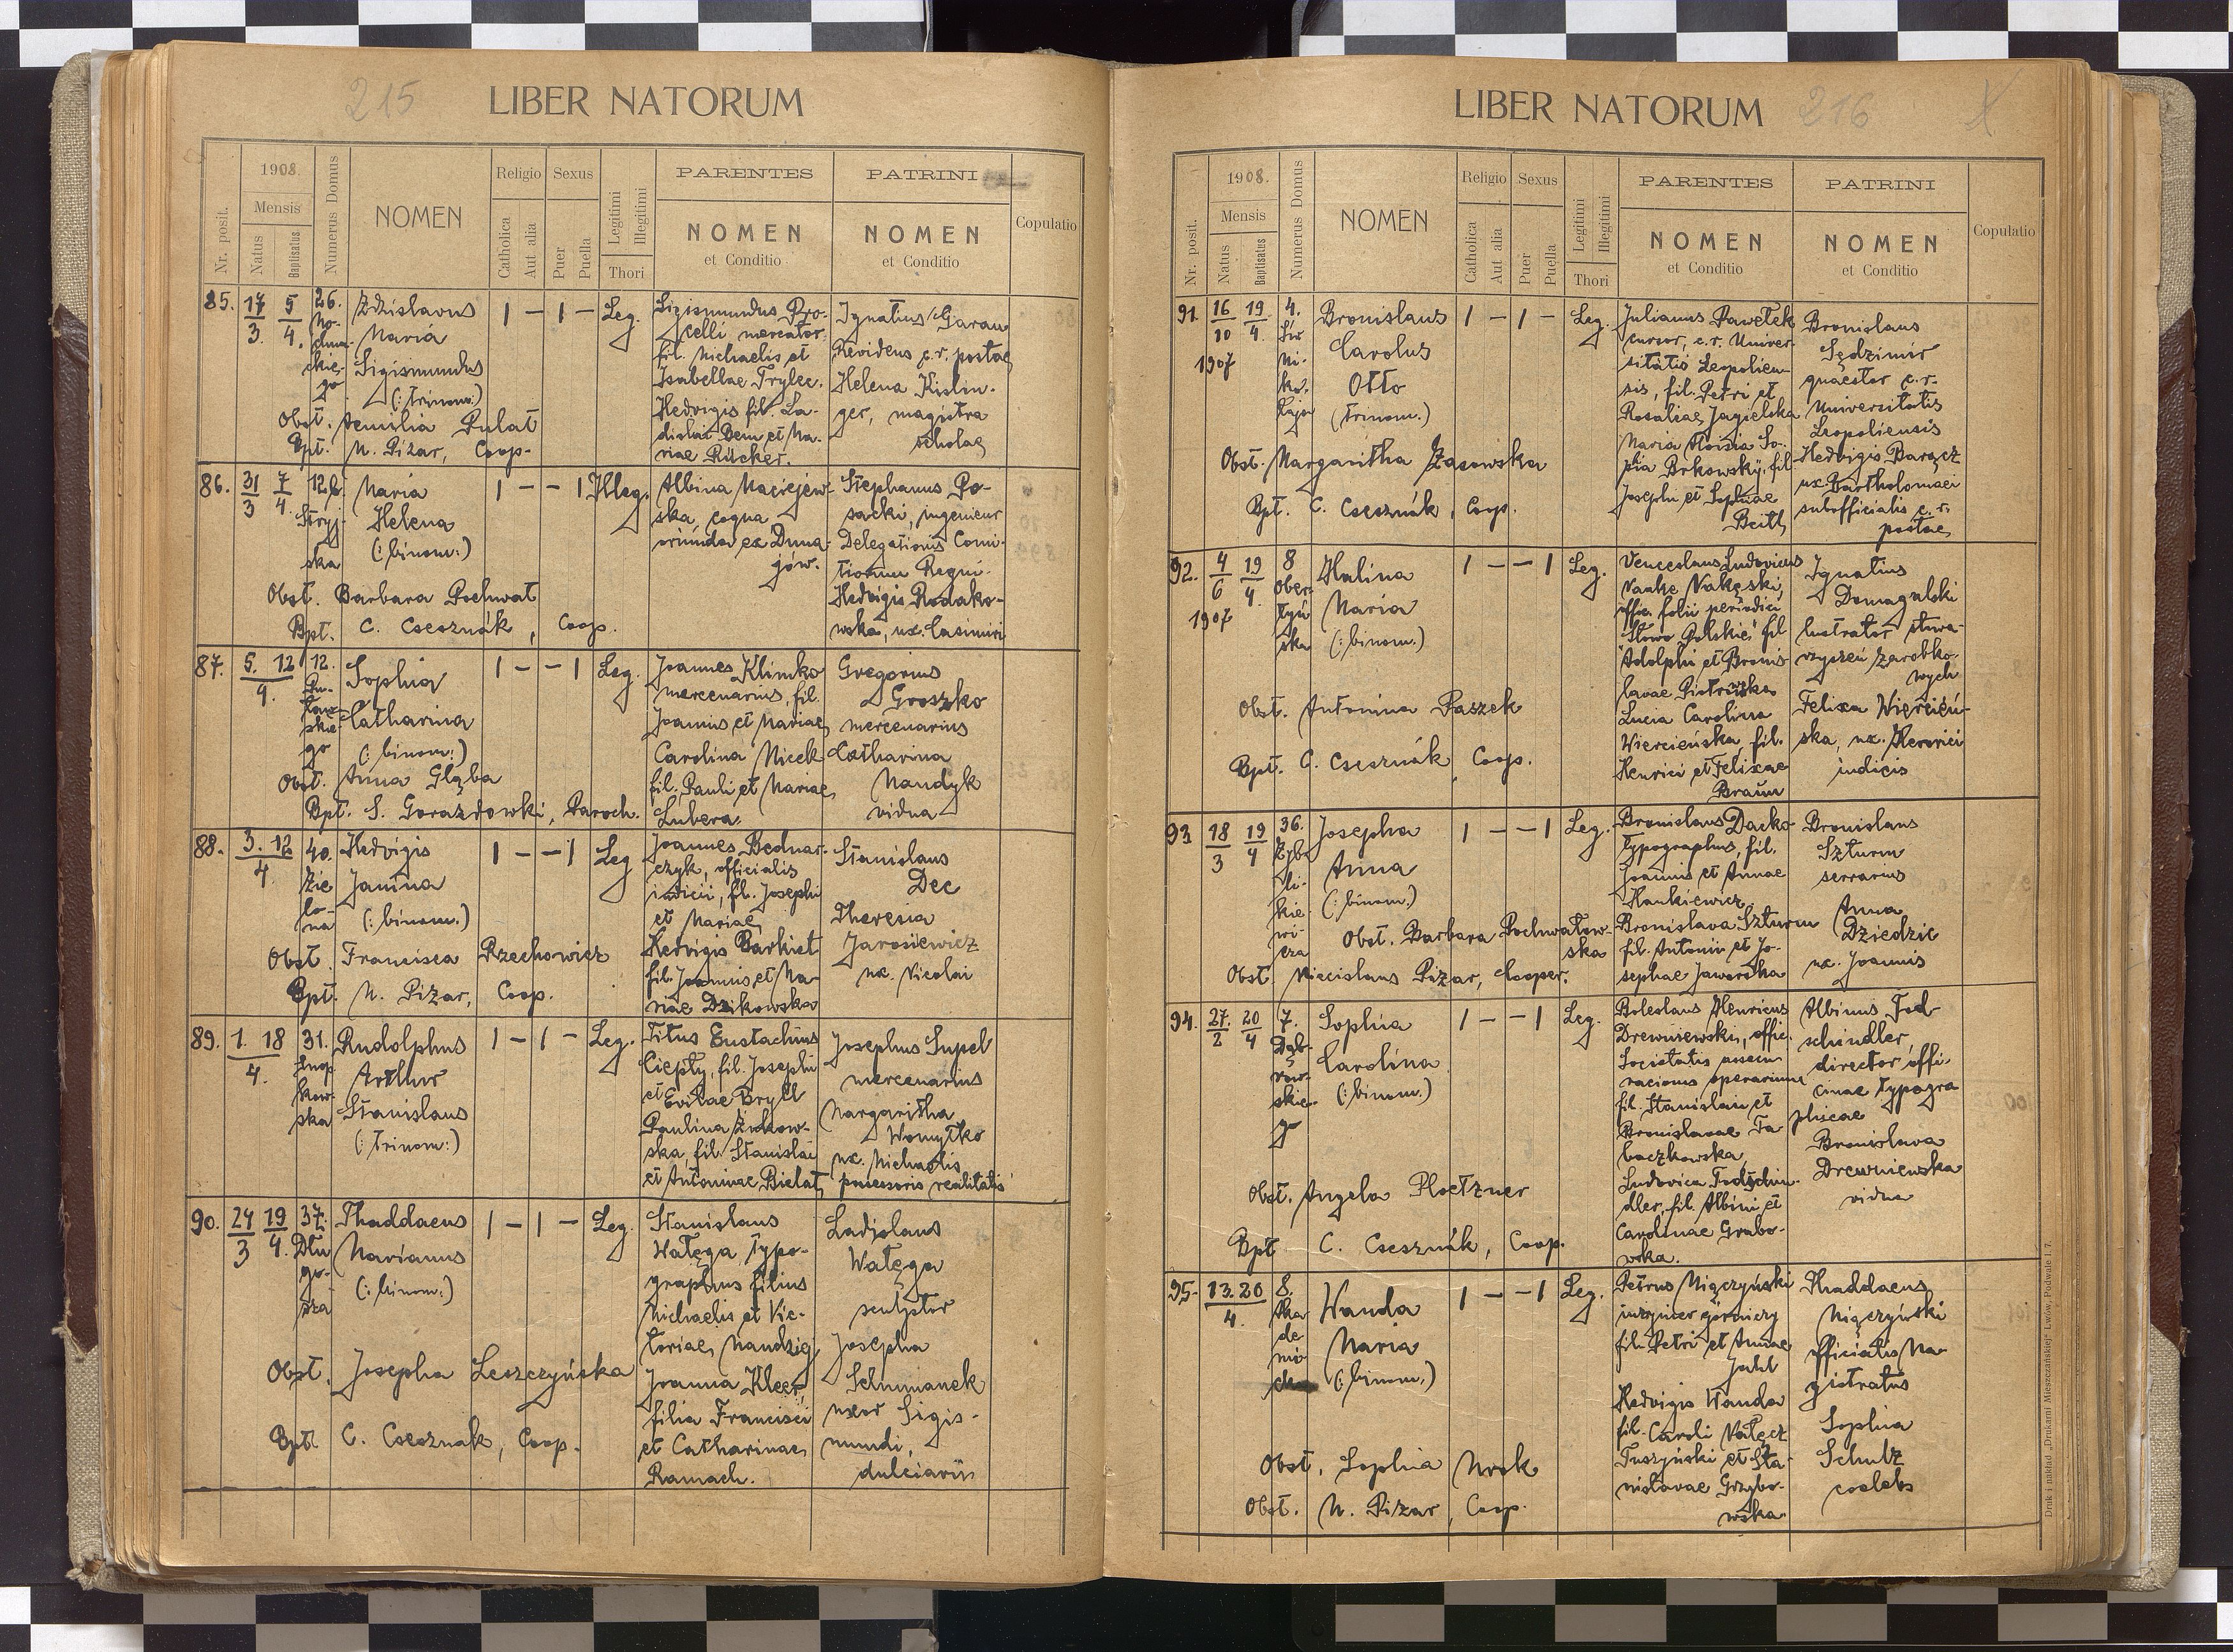 215
LIBER NATORUM
Nr. posit.
1908
Mensis
Natus
Baptisatus
Numerus Domus
NOMEN
Religio
Catholica
Aut alia
Sexus
Puer
Puella
Legitimi
Illegitimi
Thori
PARENTES
NOMEN
et Conditio
PATRINI
NOMEN
et Conditio
Copulatio
85.
17 5
3. 4.
26.
Zdzislavus
Maria
Sigismundus
(: trinom:)
1 — 1 —
Leg.
Sigismundus Pro-
celli mercator
fil. Michaelis et
Isabellae Trylec.
Hedvigis fil. La-
dislai Dem et Ma-
riae Rücker.
Ignatius Garau
Revidens c. r. postae
Helena Kislin-
ger, magistra
scholae
Obst. Aemilia Pulat
Bpt. M. Pizar, Coop.
86.
31 7
3 4.
12b.
Stryj-
ska
Maria
Helena
(: binom:)
1 — — 1
Illeg.
Albina Maciejew-
ska, coqua
oriunda ex Duna-
jów.
Stephanus Po-
sacki, ingenieur
Delegationis Comi-
tiorum Regni.
Hedvigis Rodako-
wska, ux. Casimiri
Obst. Barbara Pochwat
Bpt. C. Csesznák, Coop.
87.
5. 12
4.
12.
Sophia
Catharina
(: binom:)
1 — — 1
Leg.
Joannes Klimko
mercenarius, fil.
Joannis et Mariae
Carolina Micek
fil. Pauli et Mariae
Lubera.
Gregorius
Groszko
mercenarius
Catharina
Mandyk
vidua
Obst. Anna Głąba
Bpt. S. Gorazdowski, Paroch.
88.
3. 12
4.
40.
Zie
lo-
na
Hedvigis
Janina
(: binom:)
1 — — 1
Leg
Joannes Bednar-
czyk, officialis
iudicii, fil. Josephi
et Mariae
Hedvigis Barkiet
fil. Joannis et Ma-
riae Dzikowska
Stanislaus
Dec
Theresia
Jarosiewicz
ux. Nicolai
Obst. Francisca Rzechowicz
Bpt. M. Pizar, Coop.
89.
1. 18
4.
31.
Snop
kow-
ska
Rudolphus
Arthur
Stanislaus
(: trinom:)
1 — 1 —
Leg.
Titus Eustachius
Ciepły, fil. Josephi
et Evae Bryll
Paulina Żukow-
ska, fil. Stanislai
et Antoninae Bielat
Josephus Supel
mercenarius
Margaritha
Womytko
ux. Michaelis
possessoris realitatis
90.
24 19
3 4.
37.
Dłu
go-
sza
Thaddaeus
Marianus
(: binom:)
1 — 1 —
Leg.
Stanislaus
Wałęga typo-
graphus filius
Michaelis et Vic-
toriae Mandziej
Joanna Kleer,
filia Francisci
et Catharinae
Ramach.
Ladislaus
Wałęga
sculptor
Josepha
Schumanek
uxor Sigis-
mundi,
dulciarii
Obst. Josepha Leszczyńska
Bpt. C. Csesznák, Coop.
LIBER NATORUM
216
X
Nr. posit.
1908.
Mensis
Natus
Baptisatus
Numerus Domus
NOMEN
Religio
Catholica
Aut alia
Sexus
Puer
Puella
Legitimi
Illegitimi
Thori
PARENTES
NOMEN
et Conditio
PATRINI
NOMEN
et Conditio
Copulatio
91.
16 19
10 4.
1907
4.
Św
Mi-
ko-
łaja
Bronislaus
Carolus
Otto
(trinom.)
1 — 1 —
Leg.
Julianus Pawełek
cursor, c. r. Univer-
sitatis Leopolien-
sis, fil. Petri et
Rosaliae Jagielska
Maria Aloisia So-
phia Brkowský, fil
Josephi et Sophiae
Beitl
Bronislaus
Sędzimir
quaestor c. r.
Universitatis
Leopoliensis
Hedvigis Barącz
ux. Bartholomaei
subofficialis c. r.
postae
Obst. Margaritha Zasowska
Bpt. C. Csesznák, Coop.
92.
4 19
6 4.
1907
8
Ober-
tyń
ska
Halina
Maria
(: binom:)
1 — — 1
Leg.
Venceslaus Ludovicus
Nanke Nakęski,
offic. folii periodici
"Słowo Polskie" fil
Adolphi et Bronis
lavae Piotrowska
Lucia Carolina
Wiercieńska, fil.
Henrici et Felixae
Braun
Ignatius
Domagalski
lustrator stowa-
rzyszeń zarobko-
wych
Felixa Wiercień-
ska, ux. Henrici
iudicis
Obst. Antonina Paszek
Bpt. C. Csesznák, Coop.
93
18 19
3 4
36.
Zyb-
li-
kie-
wi-
cza
Josepha
Anna
(: binom:)
1 — — 1
Leg.
Bronislaus Dacko
typographus, fil.
Joannis et Annae
Hankiewicz
Bronislava Szturm
fil. Antonii et Jo-
sephae Jaworska
Bronislaus
Szturm
serrarius
Anna
Dziedzic
ux. Joannis
Obst. Barbara Pochwatow-
ska
Obst Miecislaus Pizar, Cooper.
94.
27. 20
2 4
7.
Dąb-
row-
skie-
go
Sophia
Carolina
(: binom:)
1 — — 1
Leg.
Boleslaus Henricus
Drewniewski, offic.
Societatis assecu-
racionis operariorum
fil. Stanislai et
Bronislavae Ta
baczkowska
Ludovica Todschin-
dler, fil. Albini et
Carolinae Grabo-
wska.
Albinus Tod-
schindler,
director offi-
cinae typogra
phicae
Bronislava
Drewniewska
vidua
Obst. Angela Ploetzner
Bpt C. Csesznák, Coop.
95.
13. 20
4.
8.
Aka
de
mi-
Wanda
Maria
(: binom:)
1 — — 1
Leg.
Petrus Miączyński
inżynier górniczy
fil. Petri et Annae
Jahl
Hedvigis Wanda
fil. Caroli Nałęcz
Tuszyński et Sta-
nislavae Grzybo-
wska
Thaddaeus
Miączyński
officialis Ma-
gistratus
Sophia
Schulz
coelebs
Obst. Sophia Mrok
Obst. M. Pizar, Coop.
Druk i nakład „Drukarni Mieszczańskiej" Lwów, Podwale l. 7.